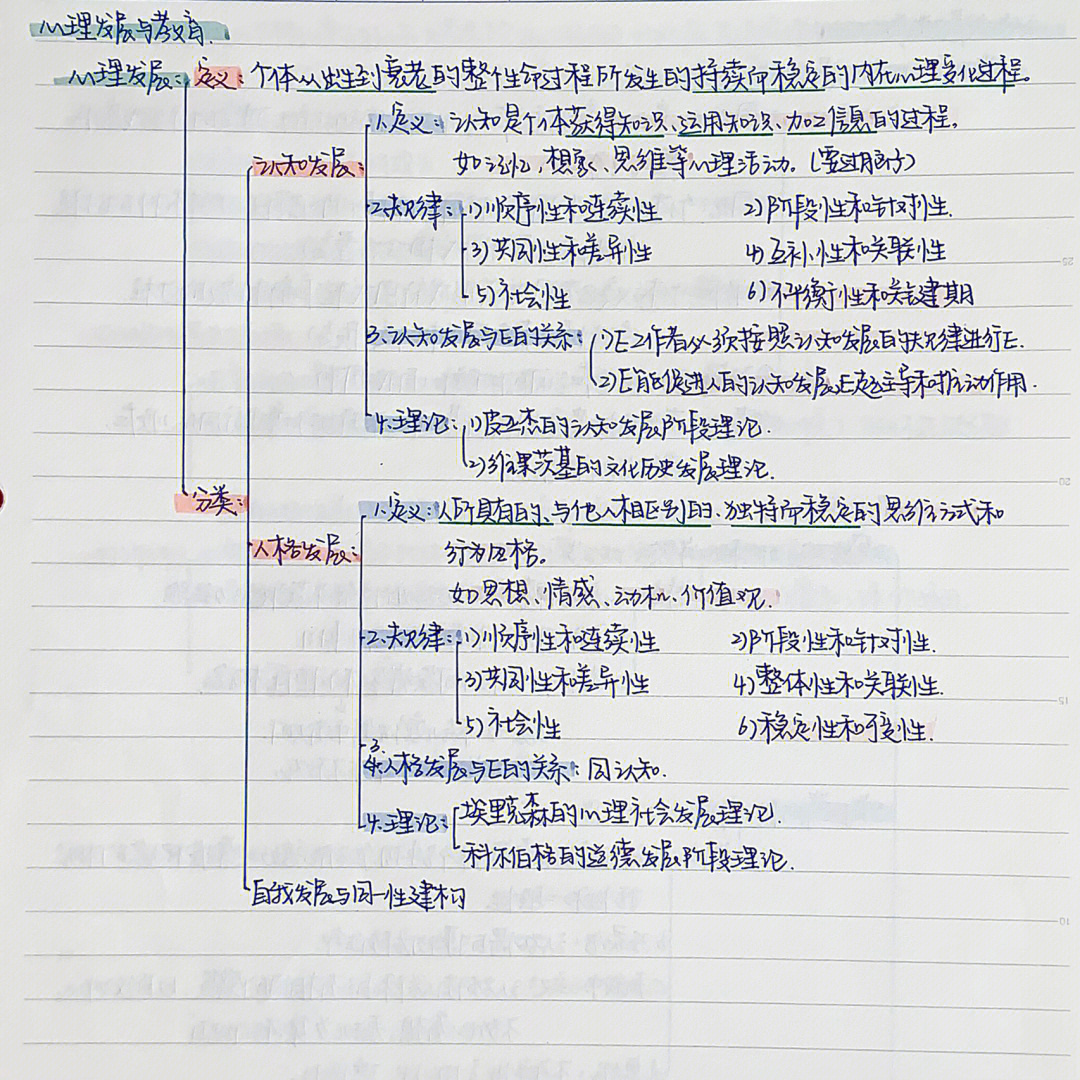 心理发展与教育.
心理发展: 定义: 个体从出生到衰老的整个生命过程所发生的持续而稳定的内在心理变化过程。
1.定义: 认知是个体获得知识、运用知识、加工信息的过程,
认知发展: 如记忆,想象、思维等心理活动.(要过脑子)
2.规律: 1)顺序性和连续性 2)阶段性和针对性.
3)共同性和差异性 4)互补性和关联性
5)社会性 6)不平衡性和关键期
3.认知发展与E的关系: 1)E工作者必须按照认知发展的规律进行E.
2)E能促进人的认知发展,E起主导和推动作用.
4.理论: 1)皮亚杰的认知发展阶段理论.
2)维果茨基的文化历史发展理论.
分类:
1.定义: 人所具有的、与他人相区别的、独特而稳定的思维方式和
人格发展: 行为风格。
如思想、情感、动机、价值观.
2.规律: 1)顺序性和连续性 2)阶段性和针对性.
3)共同性和差异性 4)整体性和关联性.
5)社会性 6)稳定性和可变性.
3.
人格发展与E的关系: 同认知.
4.理论: 埃里克森的心理社会发展理论.
科尔伯格的道德发展阶段理论.
自我发展与同一性建构
25
20
15
10